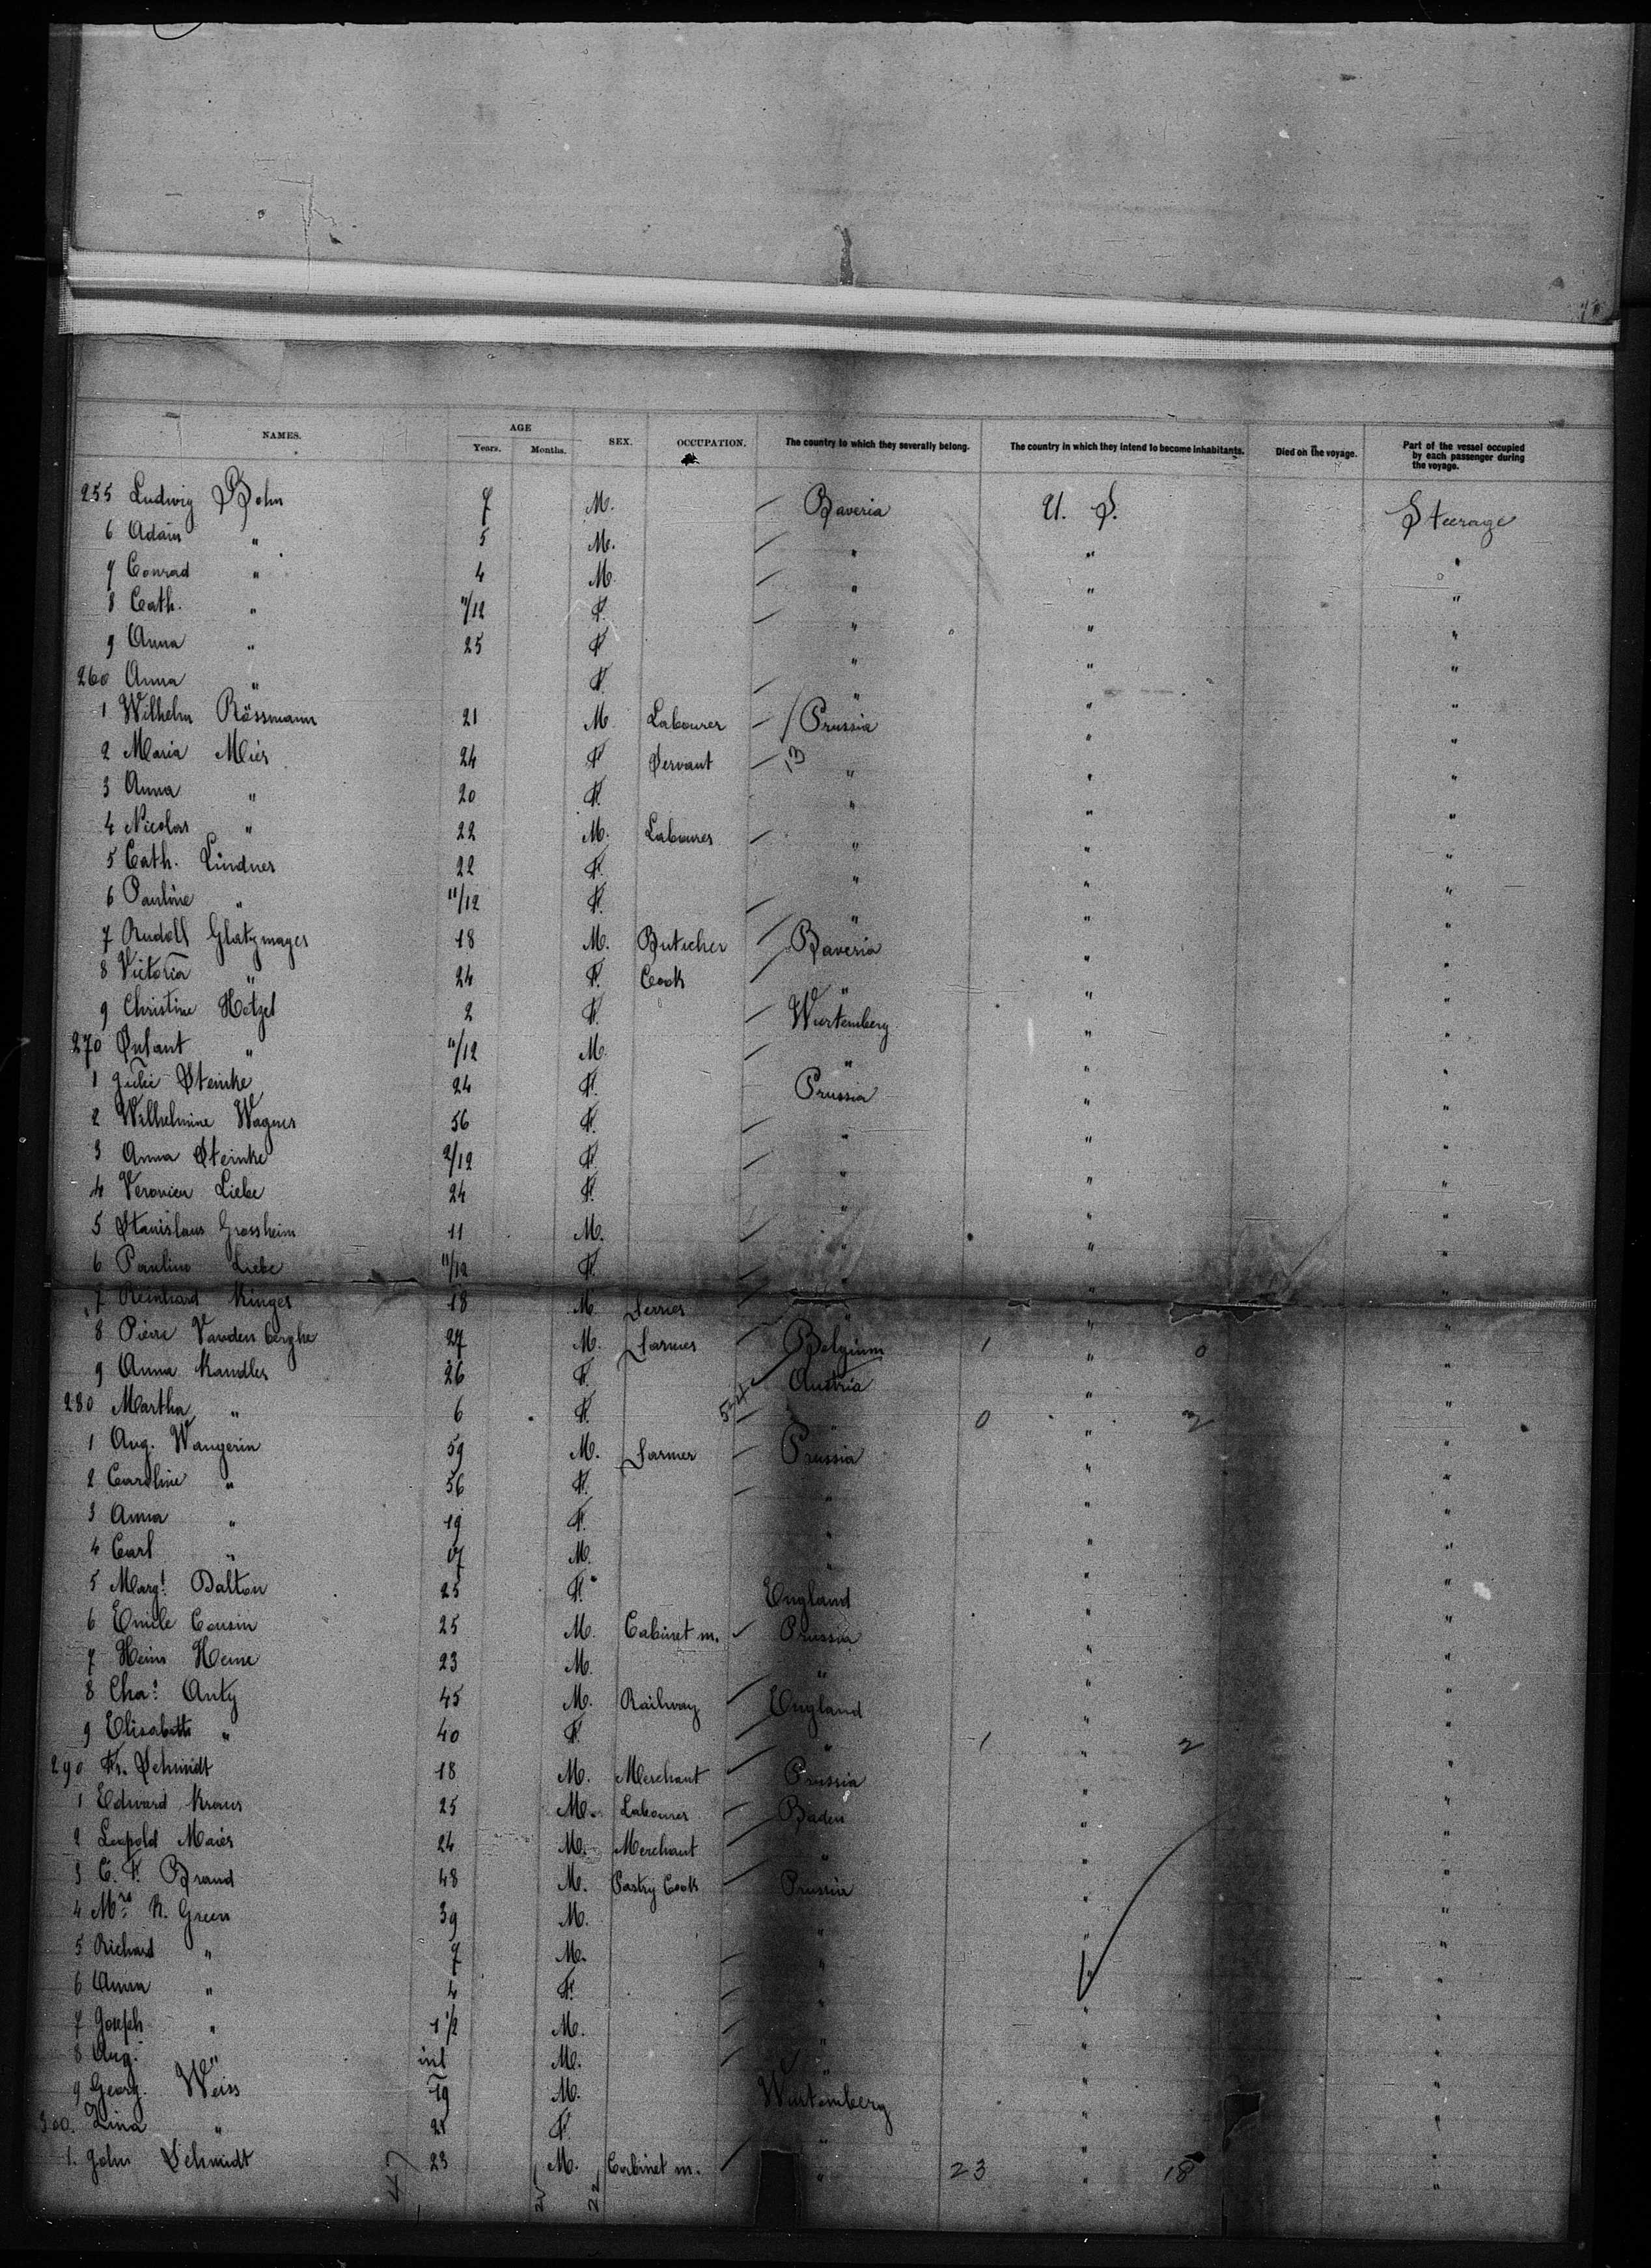 NAMES. AGE Years. Months. SEX. OCCUPATION. The country to which they severally belong. The country in which they intend to become inhabitants. Died on the voyage. Part of the vessel occupied by each passenger during the voyage.
255 Ludwig Bohn 7 M. Baveria U. S. Steerage
6 Adam " 5 M. " " "
7 Conrad " 4 M. " " "
8 Cath. " 11/12 F. " " "
9 Anna " 25 F " " "
260 Anna " F. " " "
1 Wilhelm Rössmann 21 M Labourer Prussia " "
2 Maria Mier 24 F Servant 13 " " "
3 Anna " 20 F. " " "
4 Nicolas " 22 M. Labourer " " "
5 Cath. Lindner 22 F. " " "
6 Pauline " 11/12 F. " " "
7 Rudolf 18 M. Butcher Baveria " "
8 Victoria " 24 F. Cook " " "
9 Christine Hetzel 2 F. Wurtemberg " "
270 Infant " 11/12 M. " " "
1 Julie Steinke 24 F. Prussia " "
2 Wilhelmine Wagner 56 F. " " "
3 Anna Steinke 2/12 F. " " "
4 Liebe 24 F. " " "
5 Stanislaus Grossheim 11 M. " " "
6 Pauline Liebe 11/12 F. " " "
7 Reinhard Kinges 18 M. " " "
8 Pierre Vanden berghe 27 M. Farmer Belgium 1 " 0 "
9 Anna Kandler 26 F. Austria " "
280 Martha " 6 F. " 0 " 2 "
1 Aug. Wangerin 59 M. Farmer Prussia " "
2 Caroline " 56 F. " " "
3 Anna " 19 F. " " "
4 Carl " 17 M. " " "
5 Margt. Dalton 25 F. England " "
6 Emile Cousin 25 M. Cabinet m. Prussia " "
7 Heinr Heine 23 M. " " "
8 Chas. Anty 45 M. Railway England " "
9 Elisabeth " 40 F. " 1 " 2 "
290 Fr. Schmidt 18 M. Merchant Prussia " "
1 Edward Kraus 25 M. Labourer Baden " "
2 Leopold Maier 24 M. Merchant " " "
3 C. F. Brand 48 M. Pastry Cook Prussia " "
4 Mrs. R. Green 39 M. " " "
5 Richard " 7 M. " " "
6 Anna " 4 F. " " "
7 Joseph " 1 1/2 M. " " "
8 Aug. " inf M. " " "
9 Georg. Weiss 19 M. Wurtemberg " "
300. Lina " 21 F. " " "
1. John Schmidt 23 M. Cabinet m. " 23 " 18 "
47 25 22